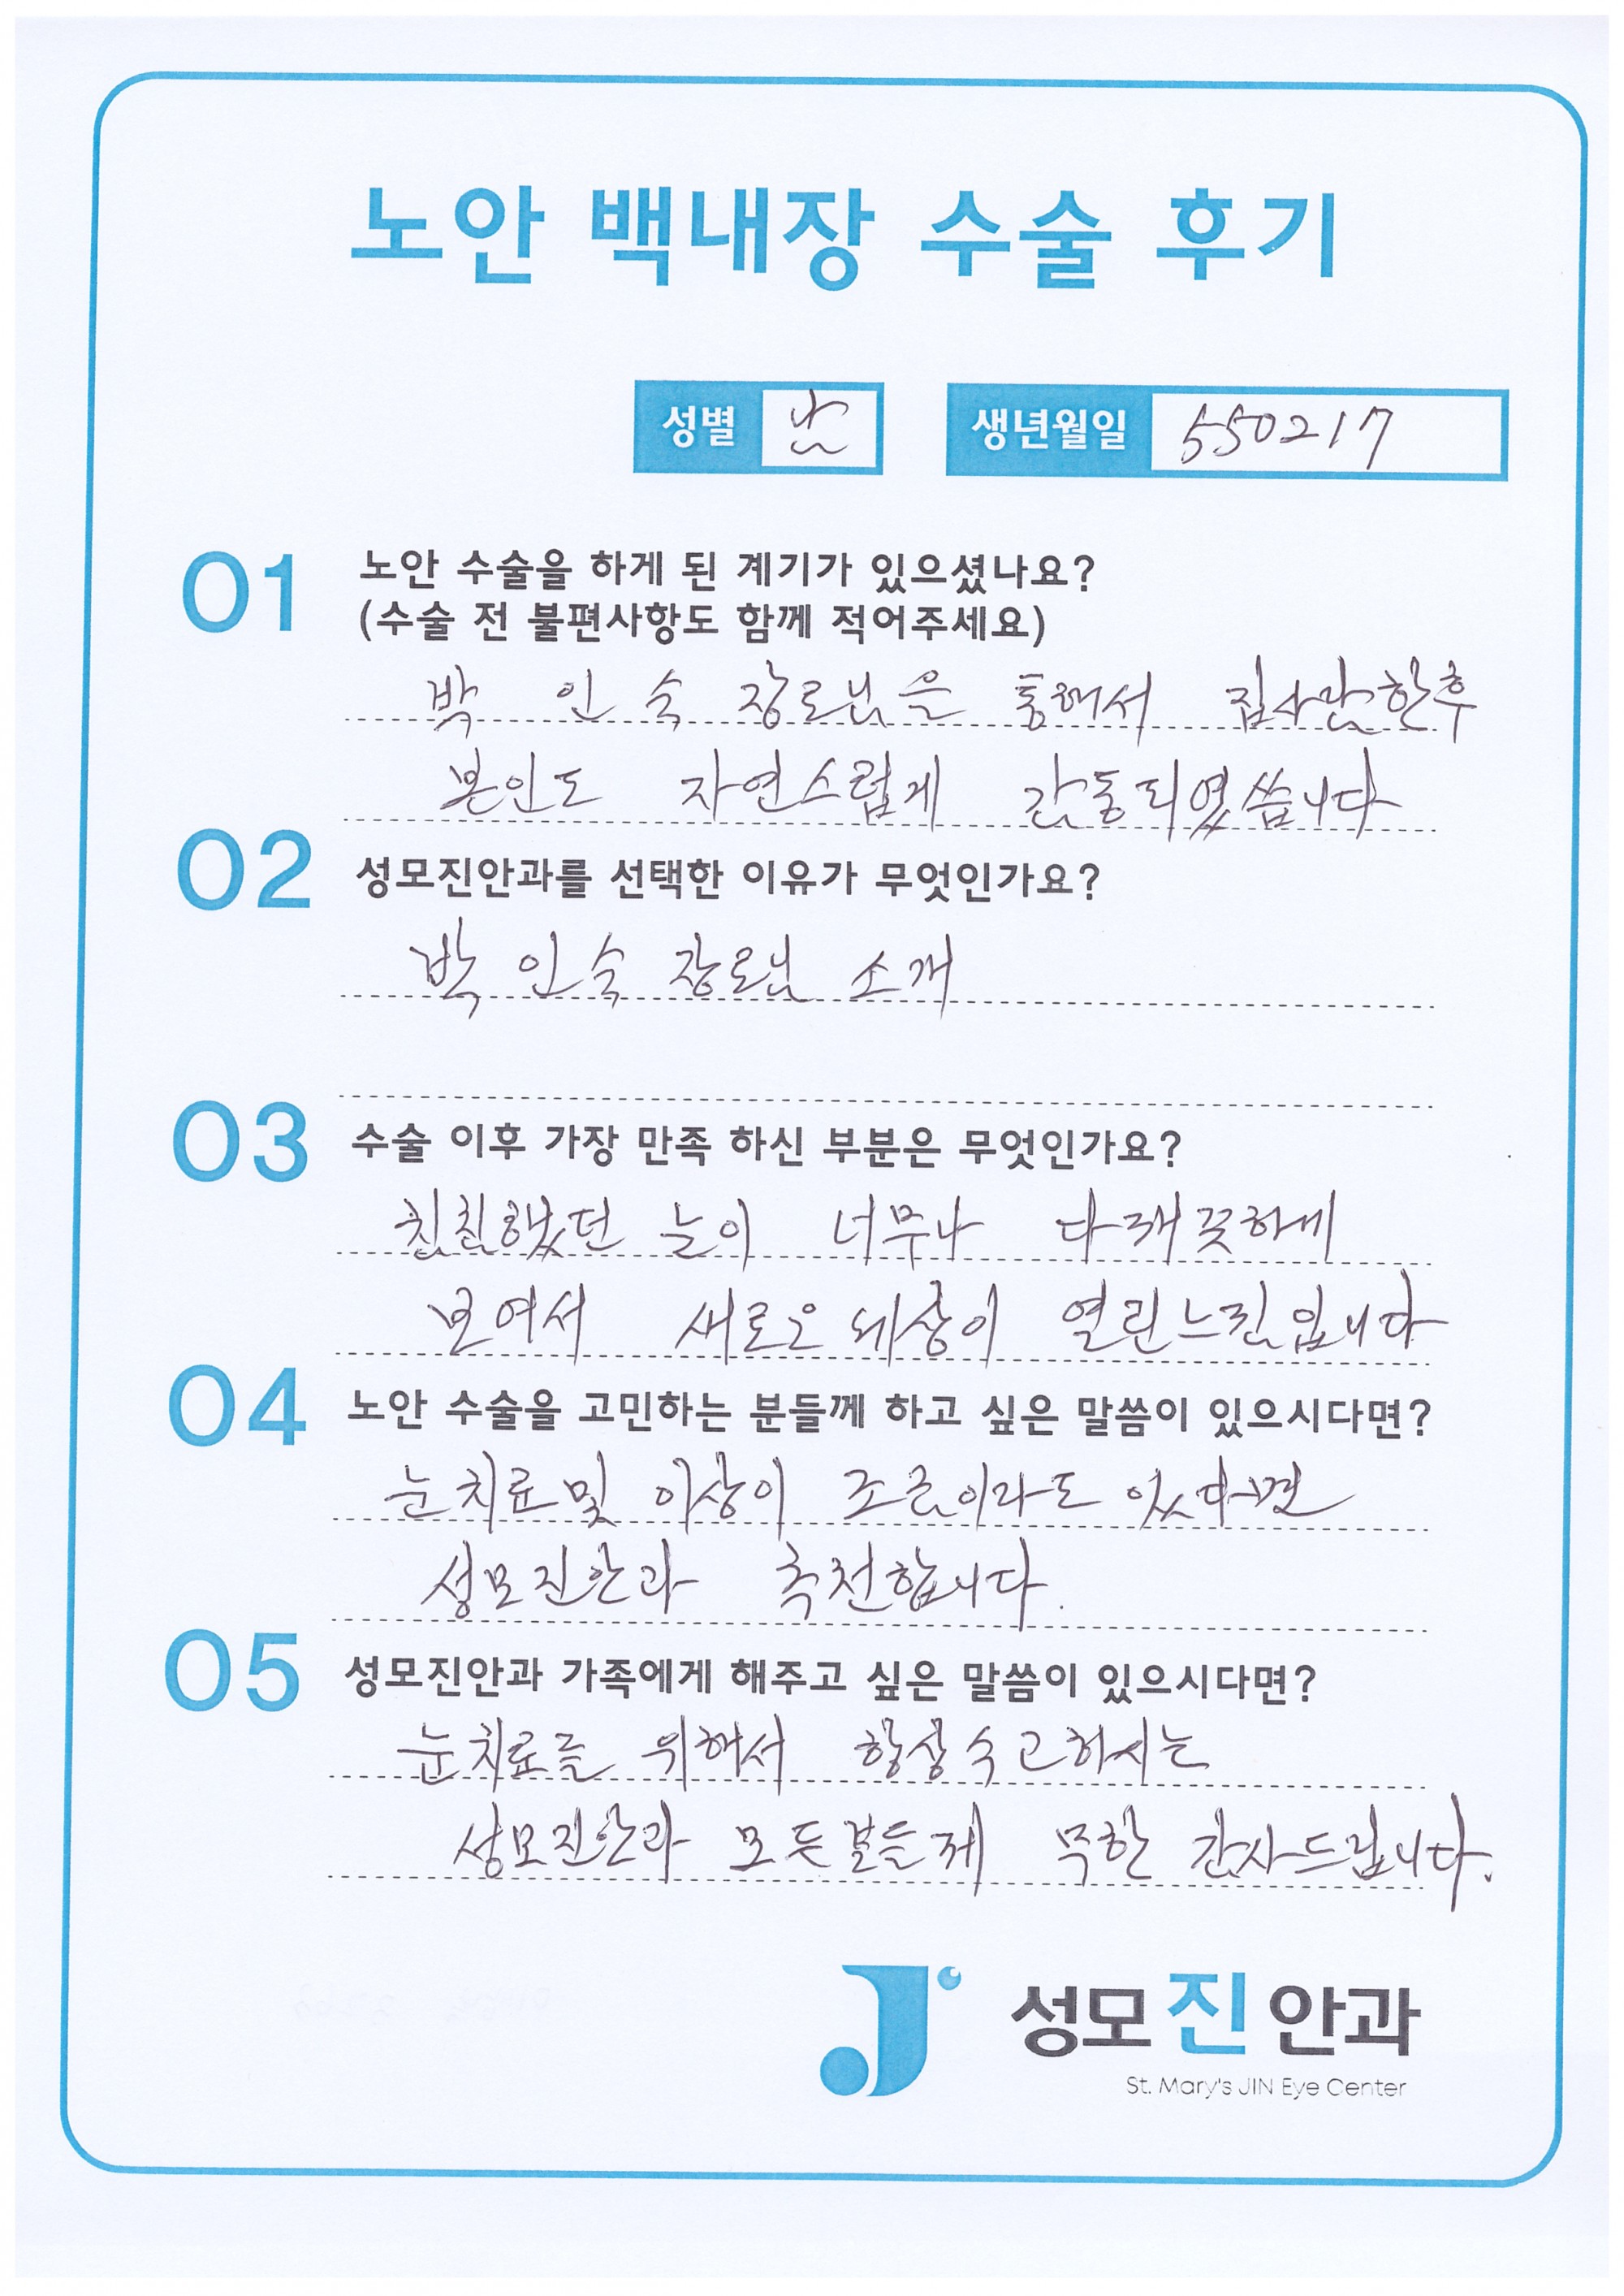 노안 백내장 수술 후기
성별 남 생년월일 550217
01 노안 수술을 하게 된 계기가 있으셨나요?
(수술 전 불편사항도 함께 적어주세요)
박 인 숙 장로님을 통해서 집사람한후
본인도 자연스럽게 감동되였씀니다
02 성모진안과를 선택한 이유가 무엇인가요?
박 인 숙 장로님 소개
03 수술 이후 가장 만족 하신 부분은 무엇인가요?
침침했던 눈이 너무나 다깨끗하게
보여서 새로운 세상이 열린느낌입니다
04 노안 수술을 고민하는 분들께 하고 싶은 말씀이 있으시다면?
눈치료및 이상이 조금이라도 있다면
성모진안과 추천합니다.
05 성모진안과 가족에게 해주고 싶은 말씀이 있으시다면?
눈치료를 위해서 항상수고하시는
성모진안과 모든분들께 무한 감사드립니다.
성모진안과
St. Mary's JIN Eye Center